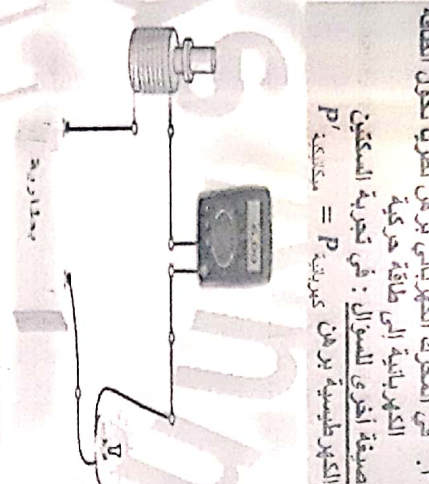 في المحرك الكهربائي برهن نظرياً تحول الطاقة
الكهربائية إلى طاقة حركية
صيغة أخرى للسؤال : في تجربة السكتين
الكهرطيسية برهن P كهربائية = P' ميكانيكية